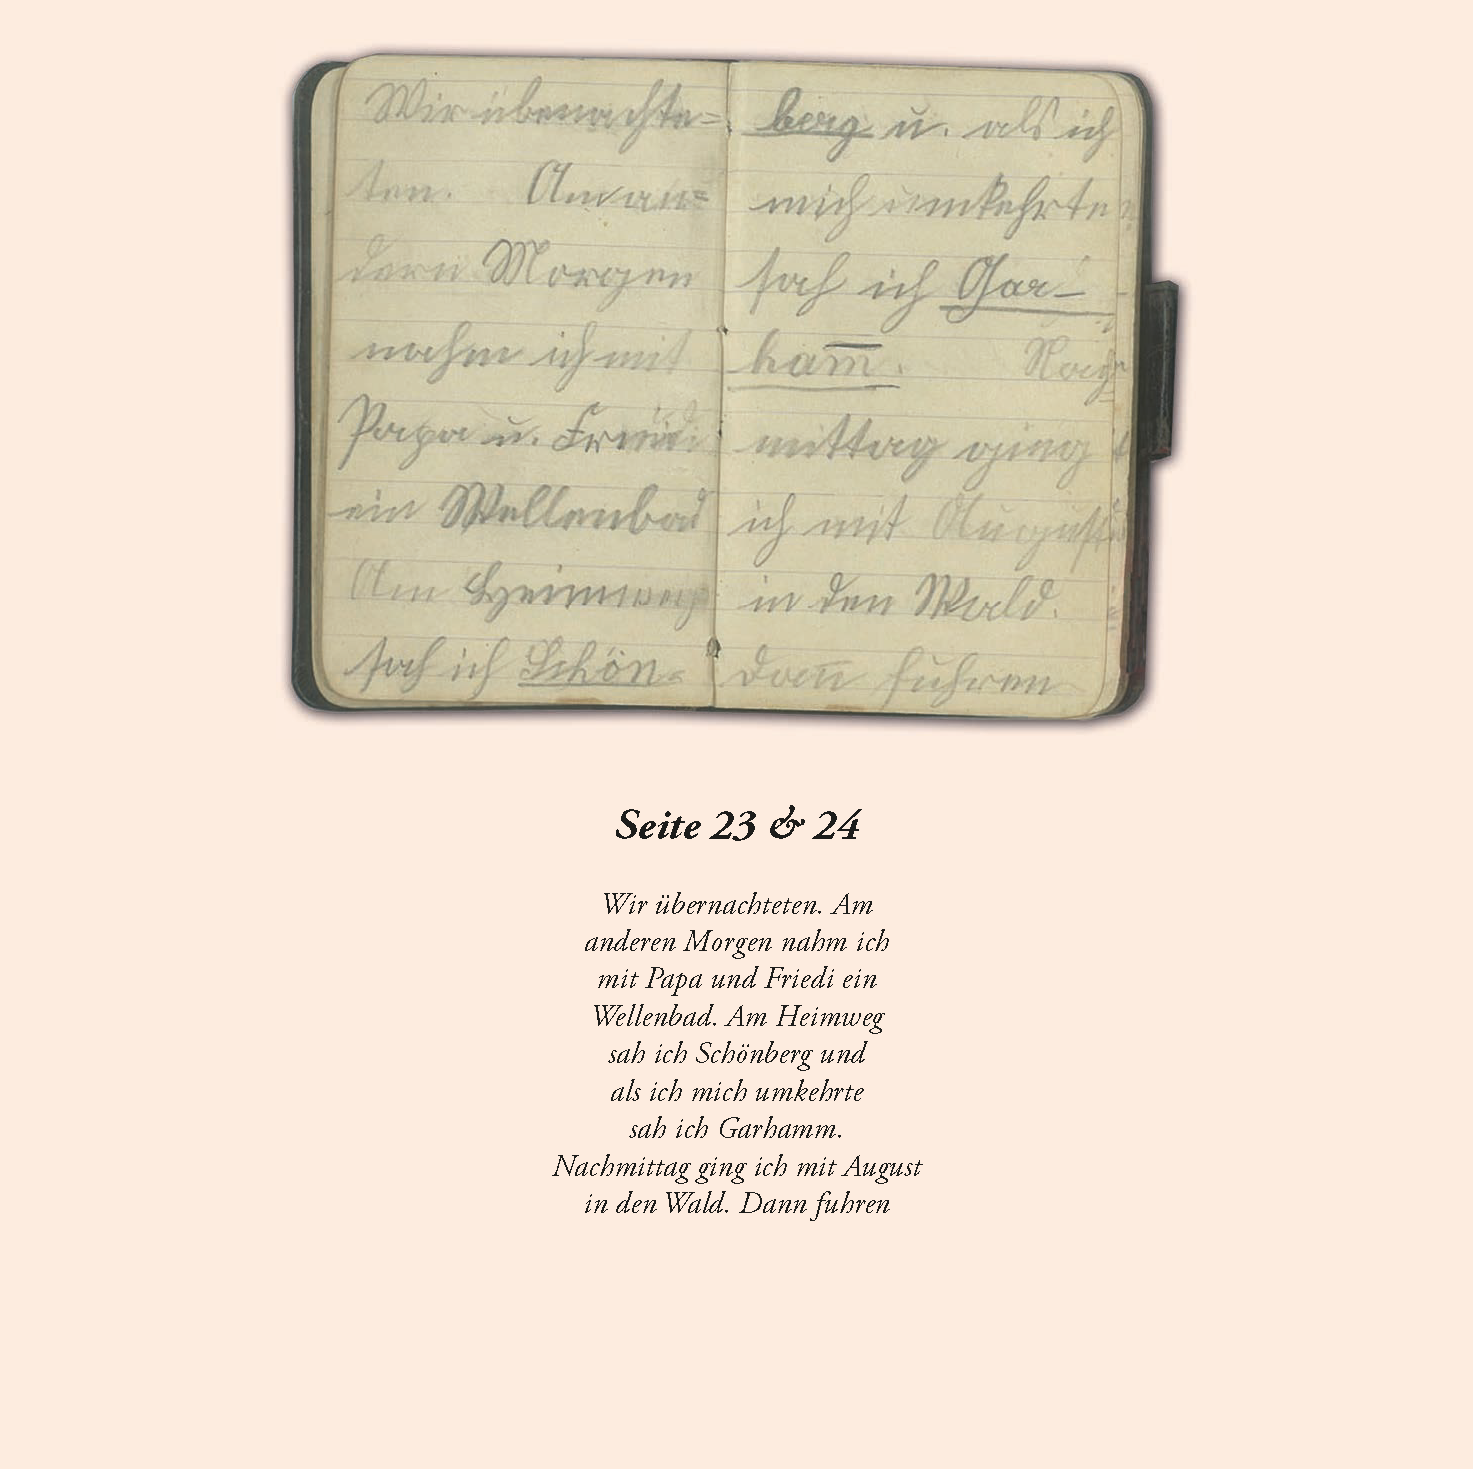 Wir übernachte=
ten. Am an=
dern Morgen
nahm ich mit
Papa u. Friedi
ein Wellenbad
Am Heimweg
sah ich Schön=
berg u. als ich
mich umkehrte
sah ich Gar-
ham̅. Nach=
mittag ging
ich mit August
in den Wald.
Dan̅ fuhren
Seite 23 & 24
Wir übernachteten. Am
anderen Morgen nahm ich
mit Papa und Friedi ein
Wellenbad. Am Heimweg
sah ich Schönberg und
als ich mich umkehrte
sah ich Garhamm.
Nachmittag ging ich mit August
in den Wald. Dann fuhren